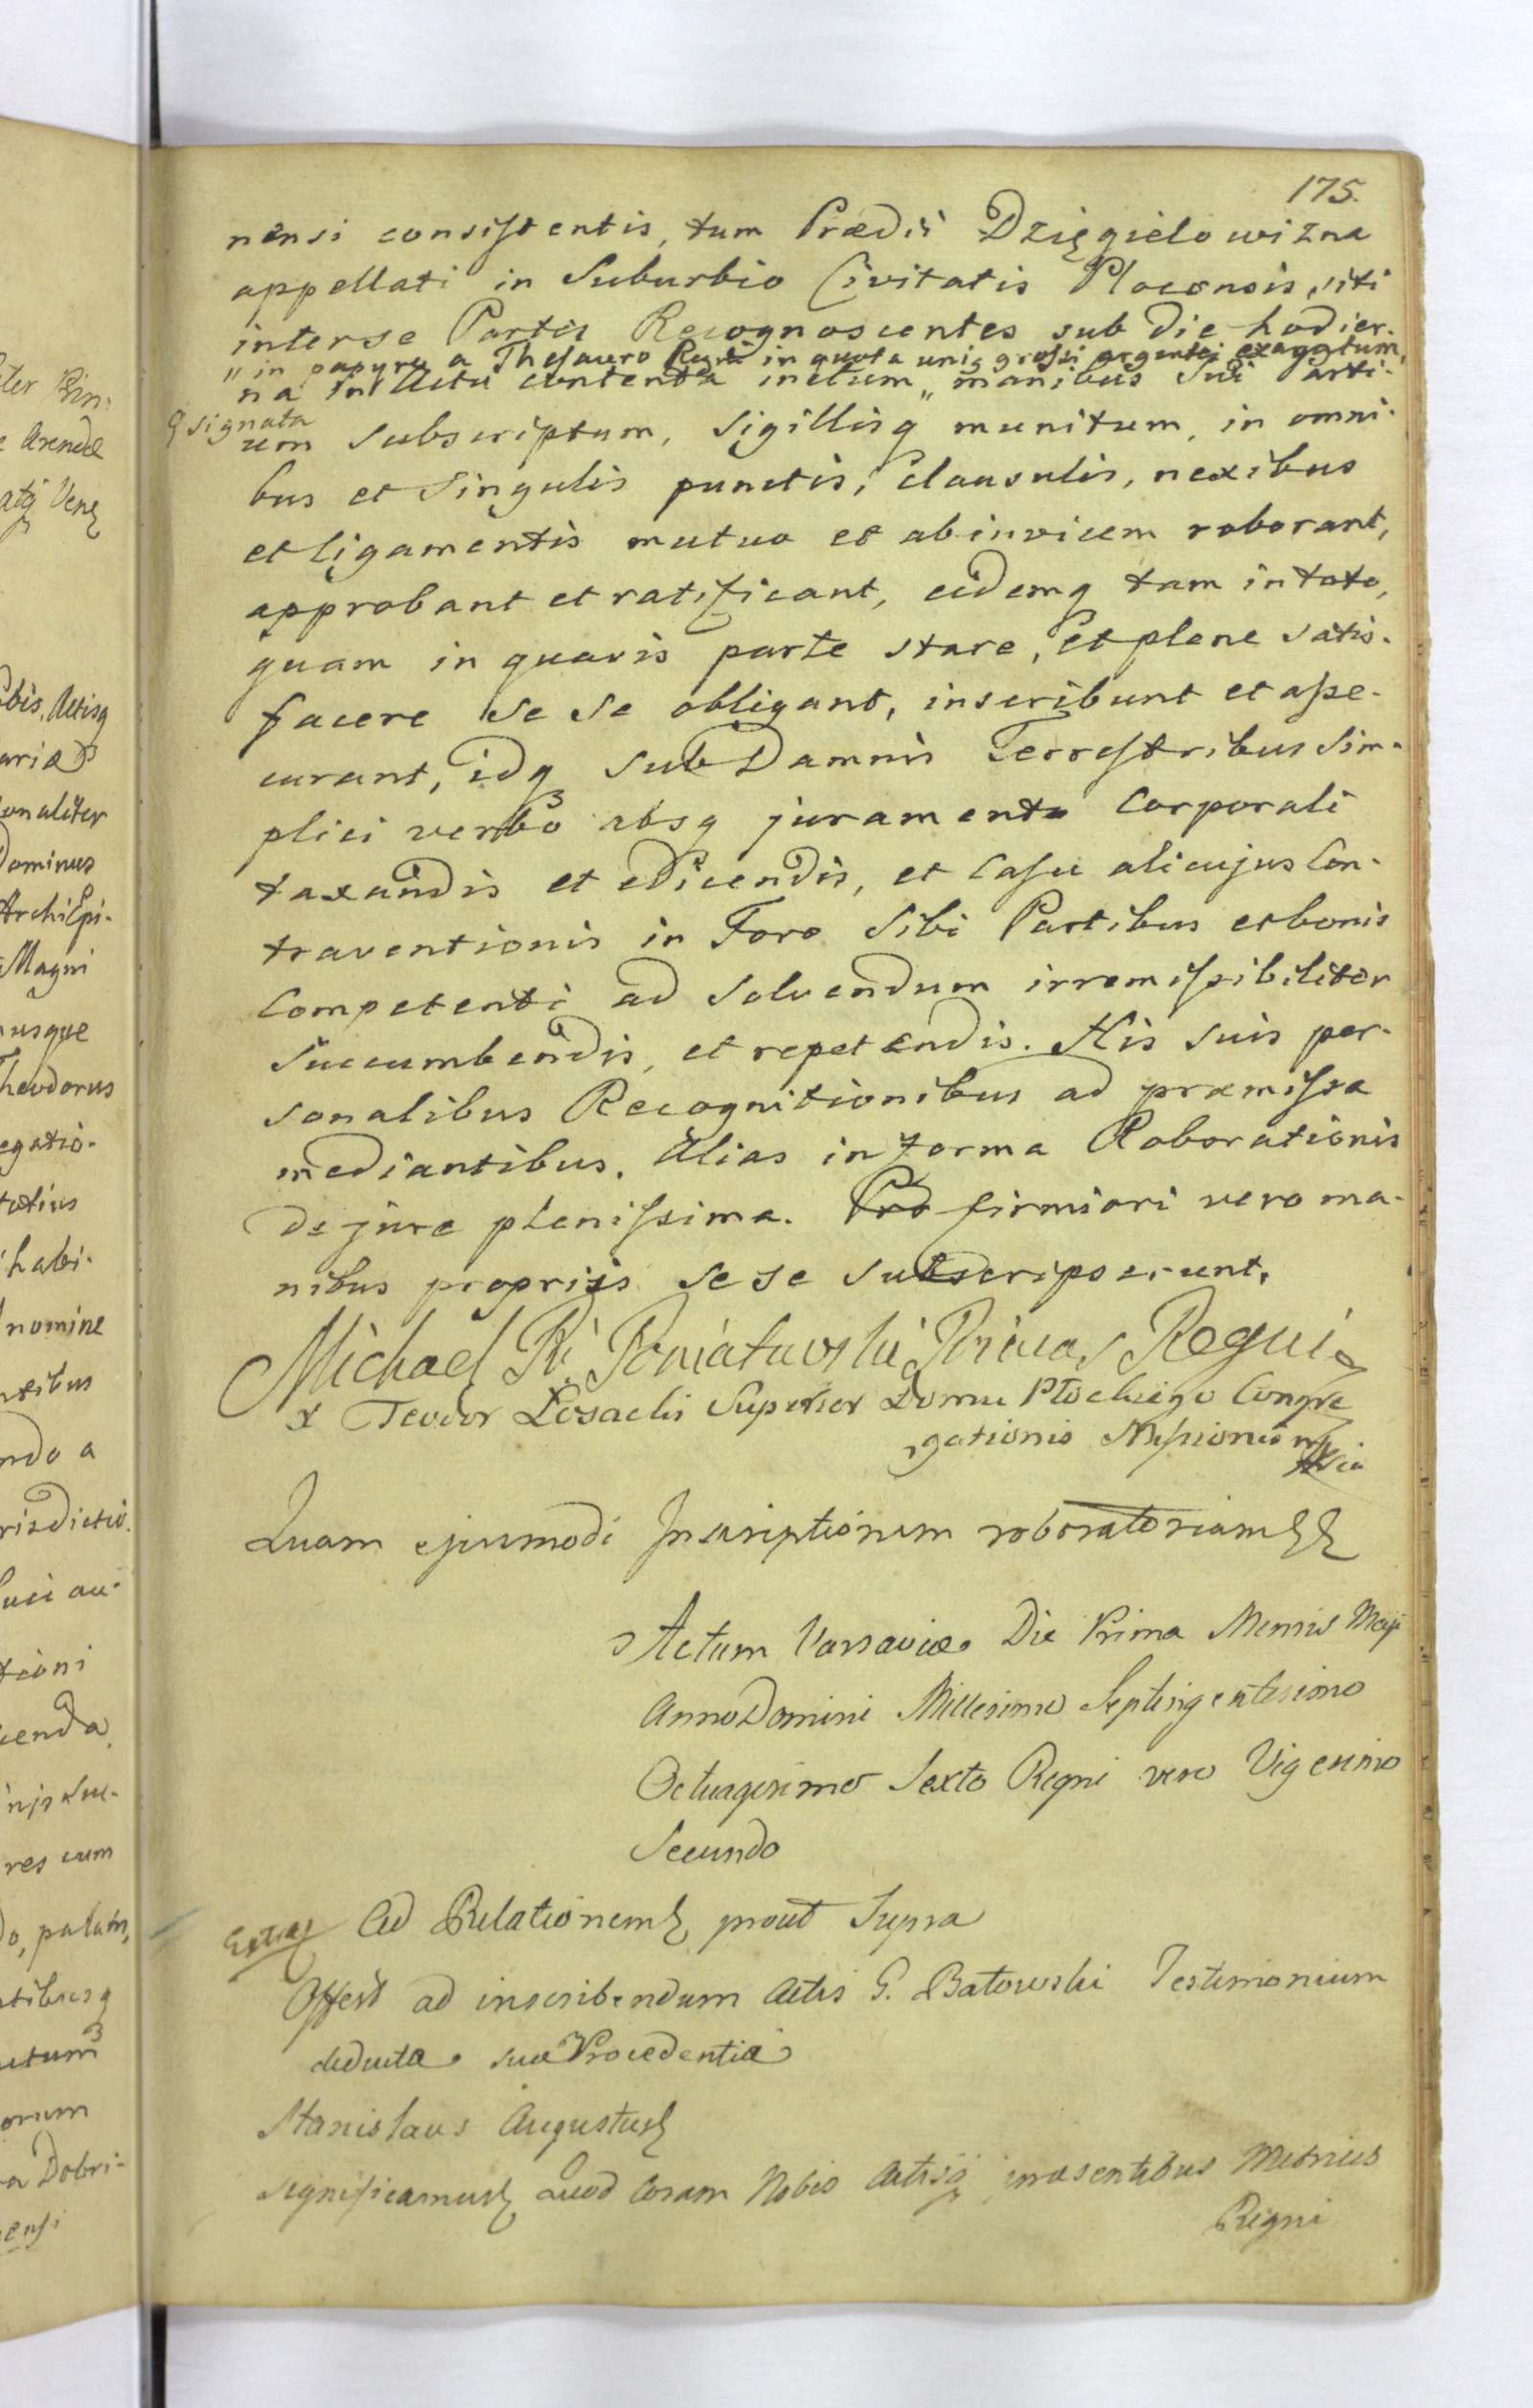 175.
nensi consistentis, tum Prædii Dzięgielowizna
appellati in Suburbio Civitatis Plocensis siti
interse Partes Recognoscentes sub die hodier-
" in papyro a Thesauro Regni in quota unius grossi argentei exaratum,
na in Actu contenta initum " manibus sui Parti-
q signata
um subscriptum, sigillisq munitum, in omni-
bus et singulis punctis, clausulis, nexibus
et ligamentis mutuo et abinvicem roborant,
approbant et ratificant, eidemq tam in toto,
quam in quavis parte stare, et plene satis-
facere se se obligant, inscribunt et asse-
curant, idq sub Damnis Terrestribus sim-
plici verbo absq juramento Corporali
taxandis et edicendis, et Casu alicujus Con-
traventionis in Foro Sibi Partibus et bonis
Competenti ad solvendum irremissibiliter
succumbendis, et repetendis. His suis per-
sonalibus Recognitionibus ad præmissa
mediantibus. Alias in forma Roborationis
de jure plenissima. Pro firmiori vero ma-
nibus propriis se se subscripserunt.
Michael Poniatowski Primas Regni
x Teodor Losacki Superior Domu Płockiego Congre
gationis Missionis
Quam ejusmodi Inscriptionem roboratoriam
Actum Varsaviæ Die Prima Mensis Maji
Anno Domini Millesimo Septingentesimo
Octuagesimo Sexto Regni vero Vigesimo
Secundo
Ad Relationem prout Supra
Offert ad inscribendum Actis G. Batowski Testimonium
deducta suæ Procedentiæ
Stanislaus Augustus
significamus Quod Coram Nobis Actisq præsentibus Metrices
Regni